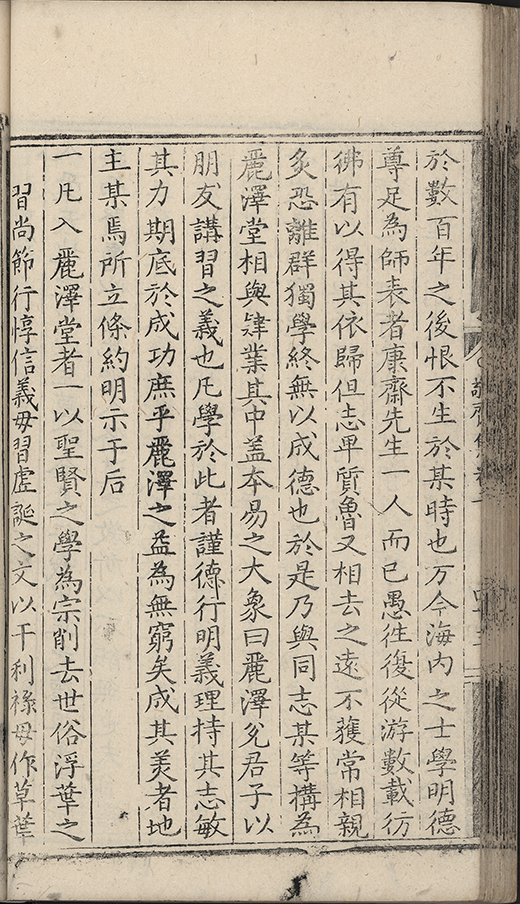 於數百年之後恨不生於某時也方今海内之士學明德
尊足為師表者康齋先生一人而已愚往復從游數載彷
彿有以得其依歸但志卑質魯又相去之遠不獲常相親
炙恐離群獨學終無以成德也於是乃與同志某等構為
麗澤堂相與肄業其中盖夲易之大象曰麗澤兊君子以
朋友講習之義也凡學於此者謹德行明義理持其志敏
其力期底於成功庶乎麗澤之益為無窮矣成其羙者地
主某焉所立條約明示于后
一凡入麗澤堂者一以聖賢之學為宗削去世俗浮華之
習尚節行惇信義毋習虚誕之文以干利祿毋作草葉